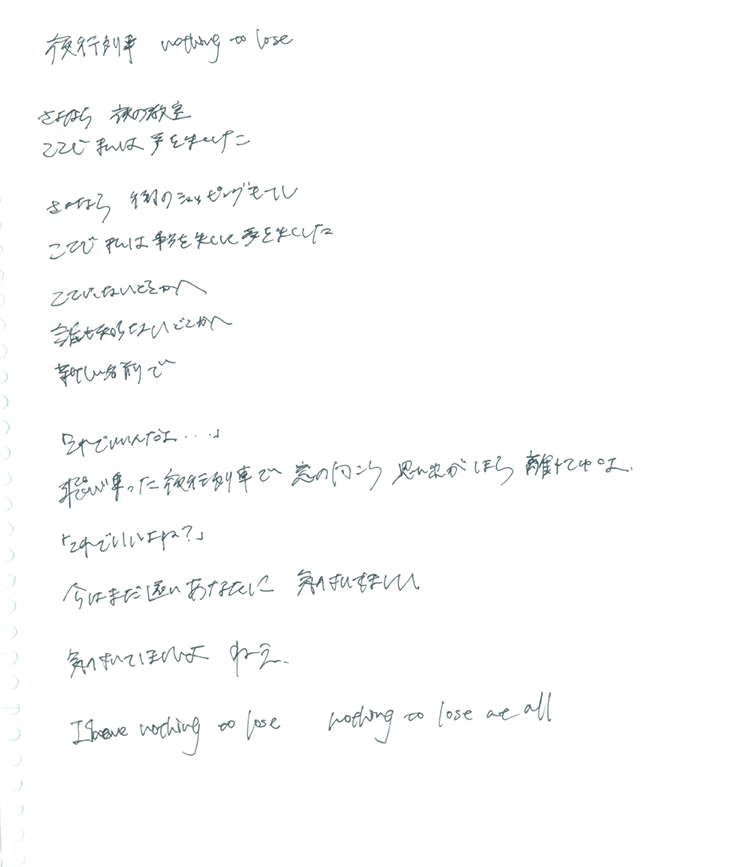 夜行列車 nothing to lose
さよなら 夜の教室
ここで私は声を失くした
さよなら 街のショッピングモール
ここで私は夢を失くした
ここじゃないどこかへ
誰も知らないどこかへ
新しい名前で
「それでいいんだよ...」
飛び乗った夜行列車で 窓の向こう 思い出がほら 離れてゆくよ
「それでいいよね?」
今はまだ遠いあなたに 気付いてほしい
気付いてほしいよ ねえ、
I have nothing to lose nothing to lose at all